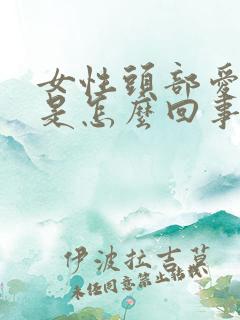 女性頭部愛
是怎麼回事
伊波拉吉莫
未经同意禁止転載